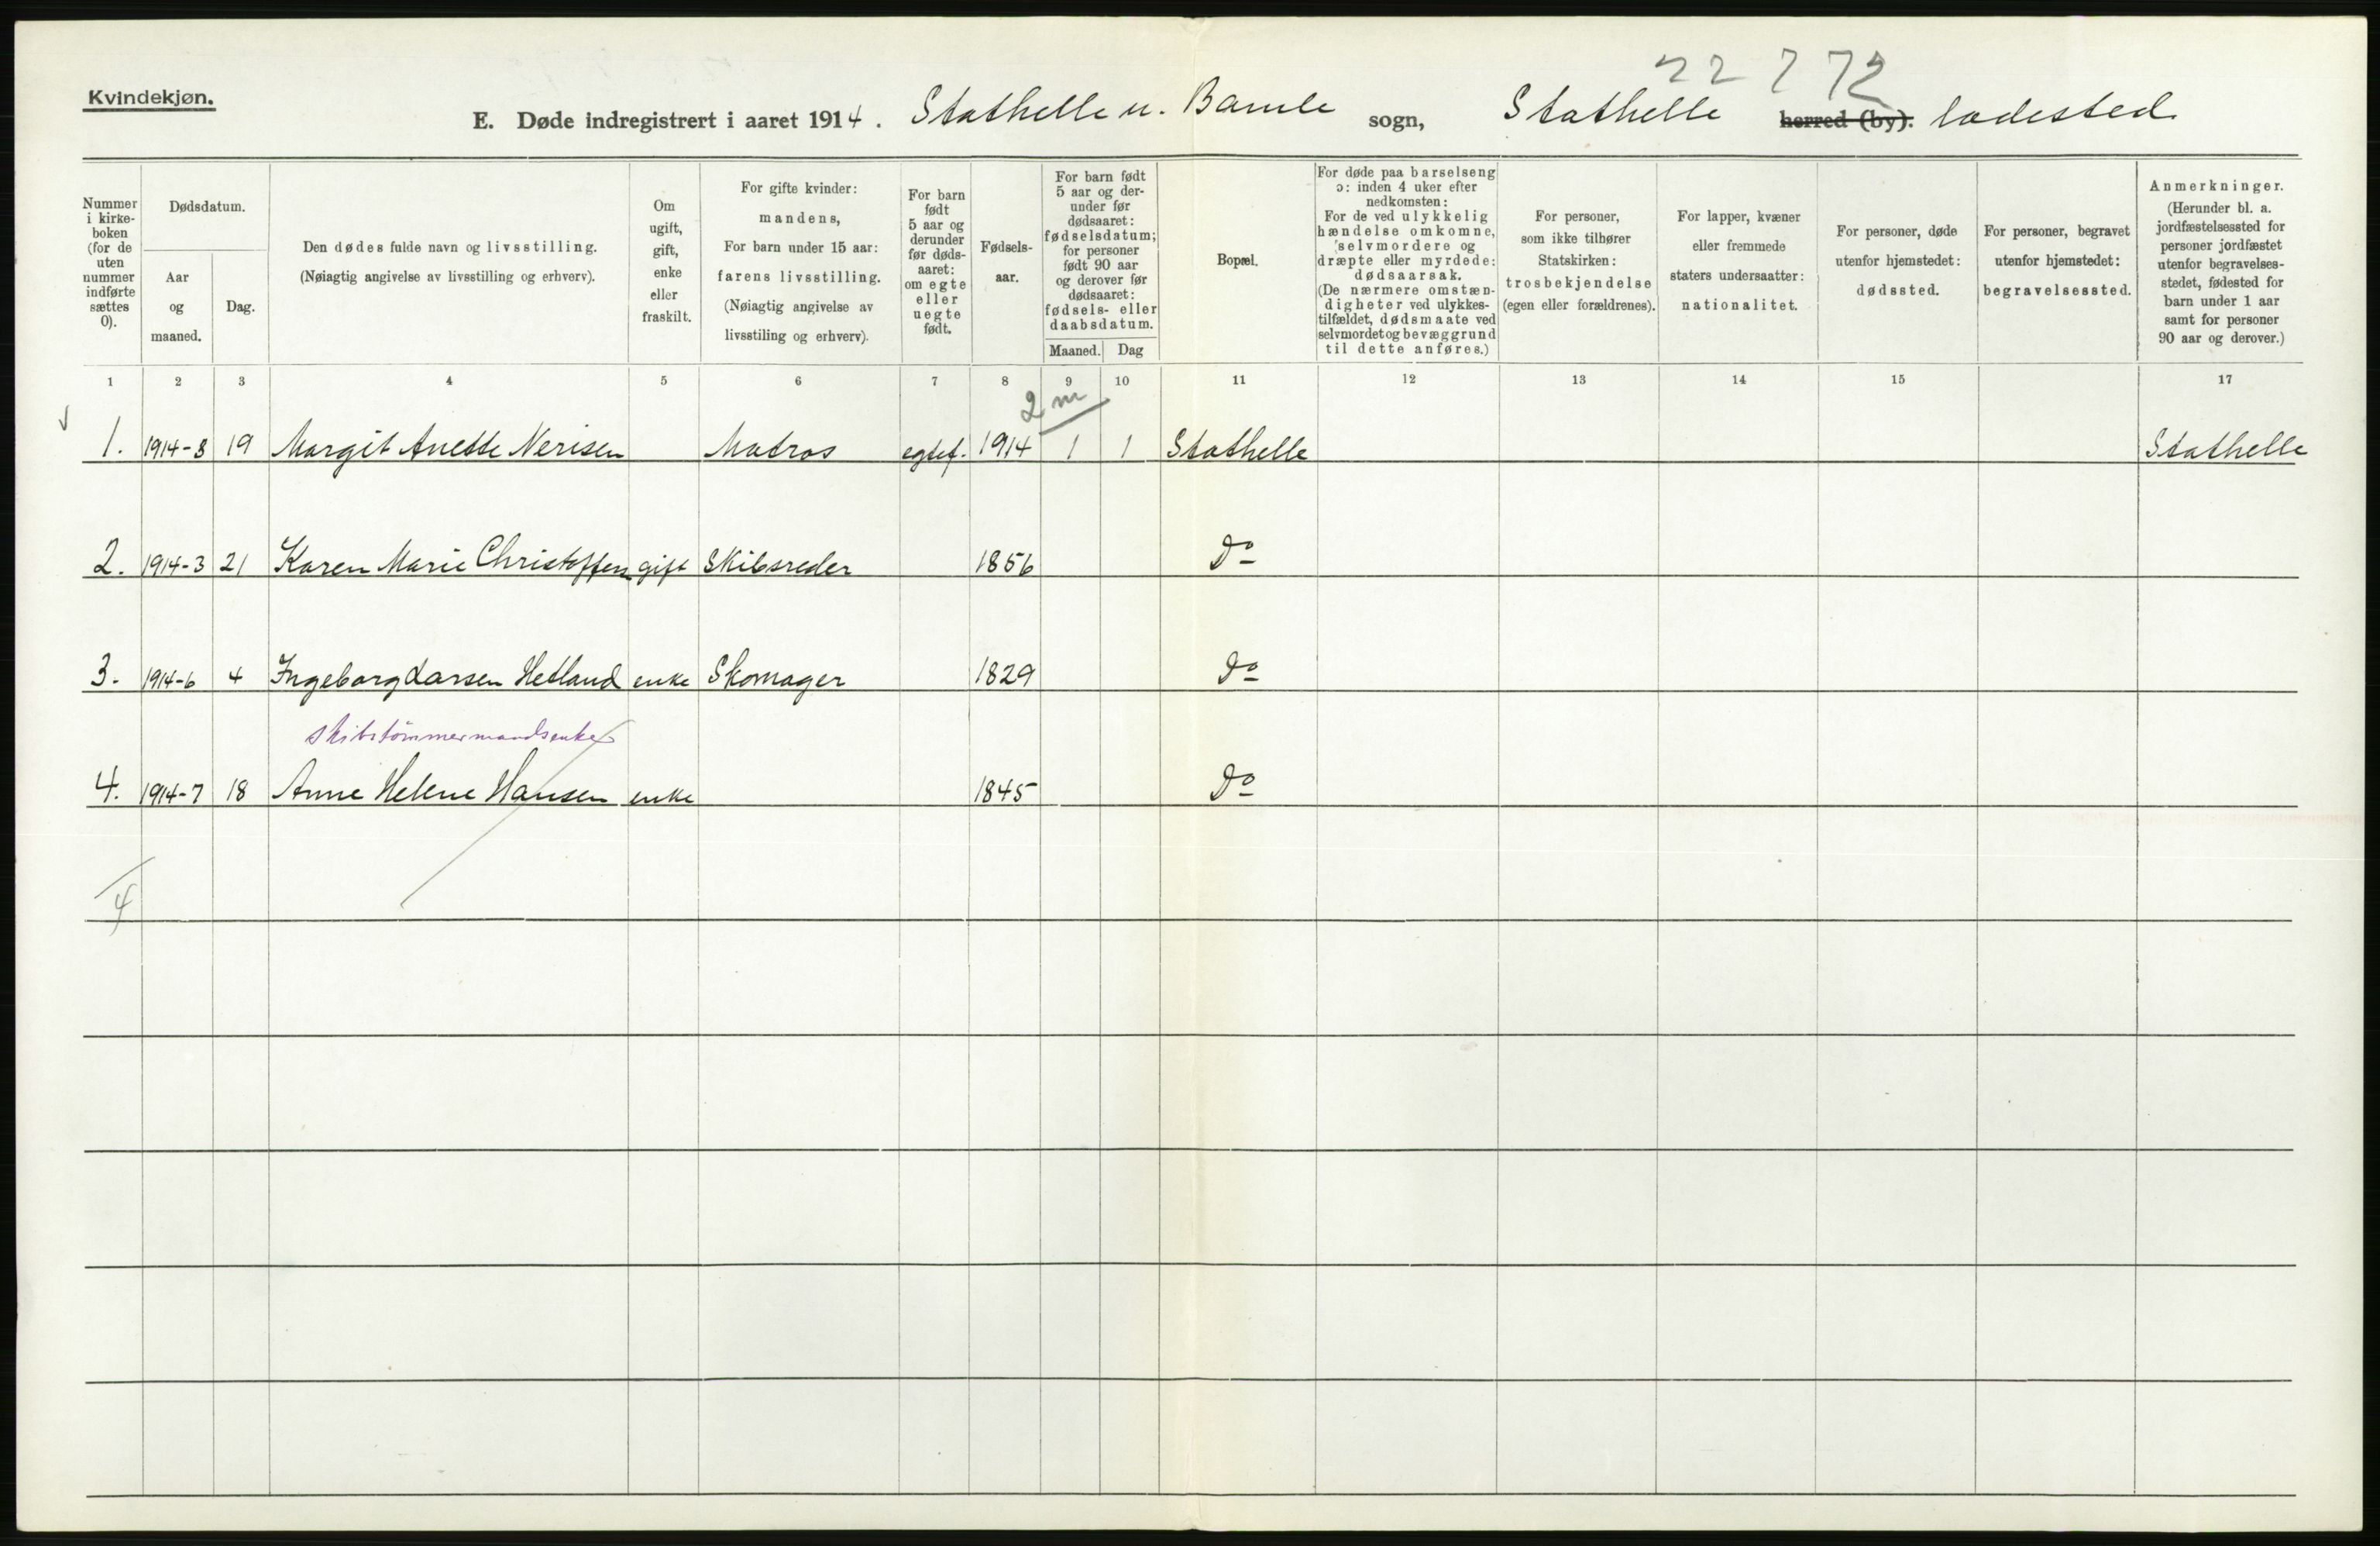 22 7 72
Kvindekjøn.
E. Døde indregistrert i aaret 1914. Stathelle u. Bamle sogn, Stathelle herred (by). ladested
Nummer i kirke-boken (for de uten nummer indførte sættes 0).
Dødsdatum.
Aar og maaned.
Dag.
Den dødes fulde navn og livsstilling.
(Nøiagtig angivelse av livsstilling og erhverv).
Om ugift, gift, enke eller fraskilt.
For gifte kvinder: mandens,
For barn under 15 aar: farens livsstilling.
(Nøiagtig angivelse av livsstiling og erhverv).
For barn født 5 aar og derunder før døds-aaret: om egte eller uegte født.
Fødsels-aar.
For barn født 5 aar og der-under før dødsaaret: fødselsdatum; for personer født 90 aar og derover før dødsaaret: fødsels- eller daabsdatum.
Maaned. Dag
Bopæl.
For døde paa barselseng ɔ: inden 4 uker efter nedkomsten:
For de ved ulykkelig hændelse omkomne, selvmordere og dræpte eller myrdede: dødsaarsak.
(De nærmere omstæn-digheter ved ulykkes-tilfældet, dødsmaate ved selvmordet og bevæggrund til dette anføres.)
For personer, som ikke tilhører Statskirken: trosbekjendelse (egen eller forældrenes).
For lapper, kvæner eller fremmede staters undersaatter: nationalitet.
For personer, døde utenfor hjemstedet: dødssted.
For personer, begravet utenfor hjemstedet: begravelsessted.
Anmerkninger.
(Herunder bl. a. jordfæstelsessted for personer jordfæstet utenfor begravelses-stedet, fødested for barn under 1 aar samt for personer 90 aar og derover.)
1 2 3 4 5 6 7 8 9 10 11 12 13 14 15 17
2 m
1. 1914-3 19 Margit Anette Nerisen Matros egtef. 1914 1 1 Stathelle Stathelle
2. 1914-3 21 Karen Marie Christoffersen gift Skibsreder 1856 Do
3. 1914-6 4 Ingeborg Larsen Hetland enke Skomager 1829 Do
skibstömmermandsenke
4. 1914-7 18 Anne Helene Hansen enke 1845 Do
4